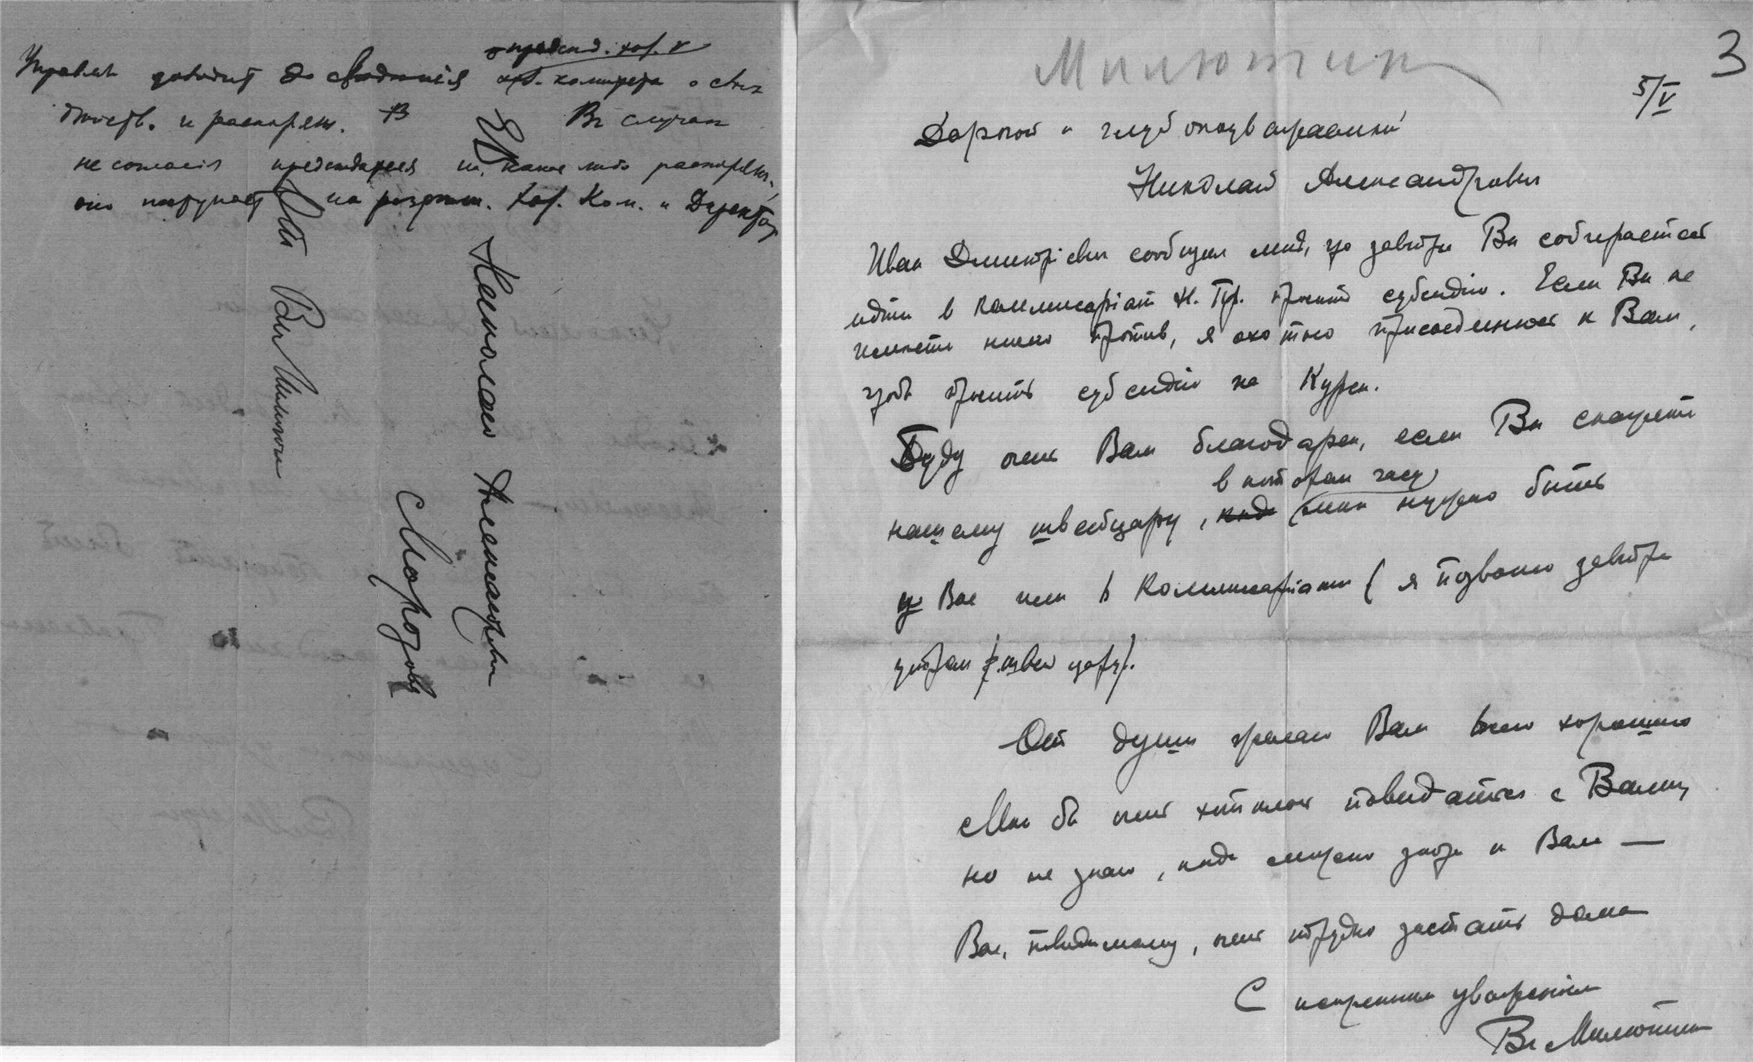 председ. хоз. и
Управл. доводит до сведения арт. комитета о сых
действ. и распоряж. В случае
не согласия председателя на какое либо распоряжен.,
оно поступает на разреш. Хоз. Ком. и Директор
ЕВ
Николаю Александровичу
Морозову
От Вл Милютина
Милютин
3
5/V
Дорогой и глубокоуважаемый
Николай Александрович
Иван Дмитріевич сообщил мне, что завтра Вы собираетесь
идти в Коммисаріат Н. Пр. просить субсидію. Если Вы не
имеете ничего против, я охотно присоединюсь к Вам,
чтоб просить субсидію на Курсы.
Буду очень Вам благодарен, если Вы скажете
в котором часу
нашему швейцару, когда мне нужно быть
у Вас или в Коммисаріате (я позвоню завтра
утром швейцару).
От души желаю Вам всего хорошего
Мне бы очень хотелось повидаться с Вами,
но не знаю, когда можно зайти к Вам —
Вас, повидимому, очень трудно застать дома
С искренним уважением
Вл Милютин